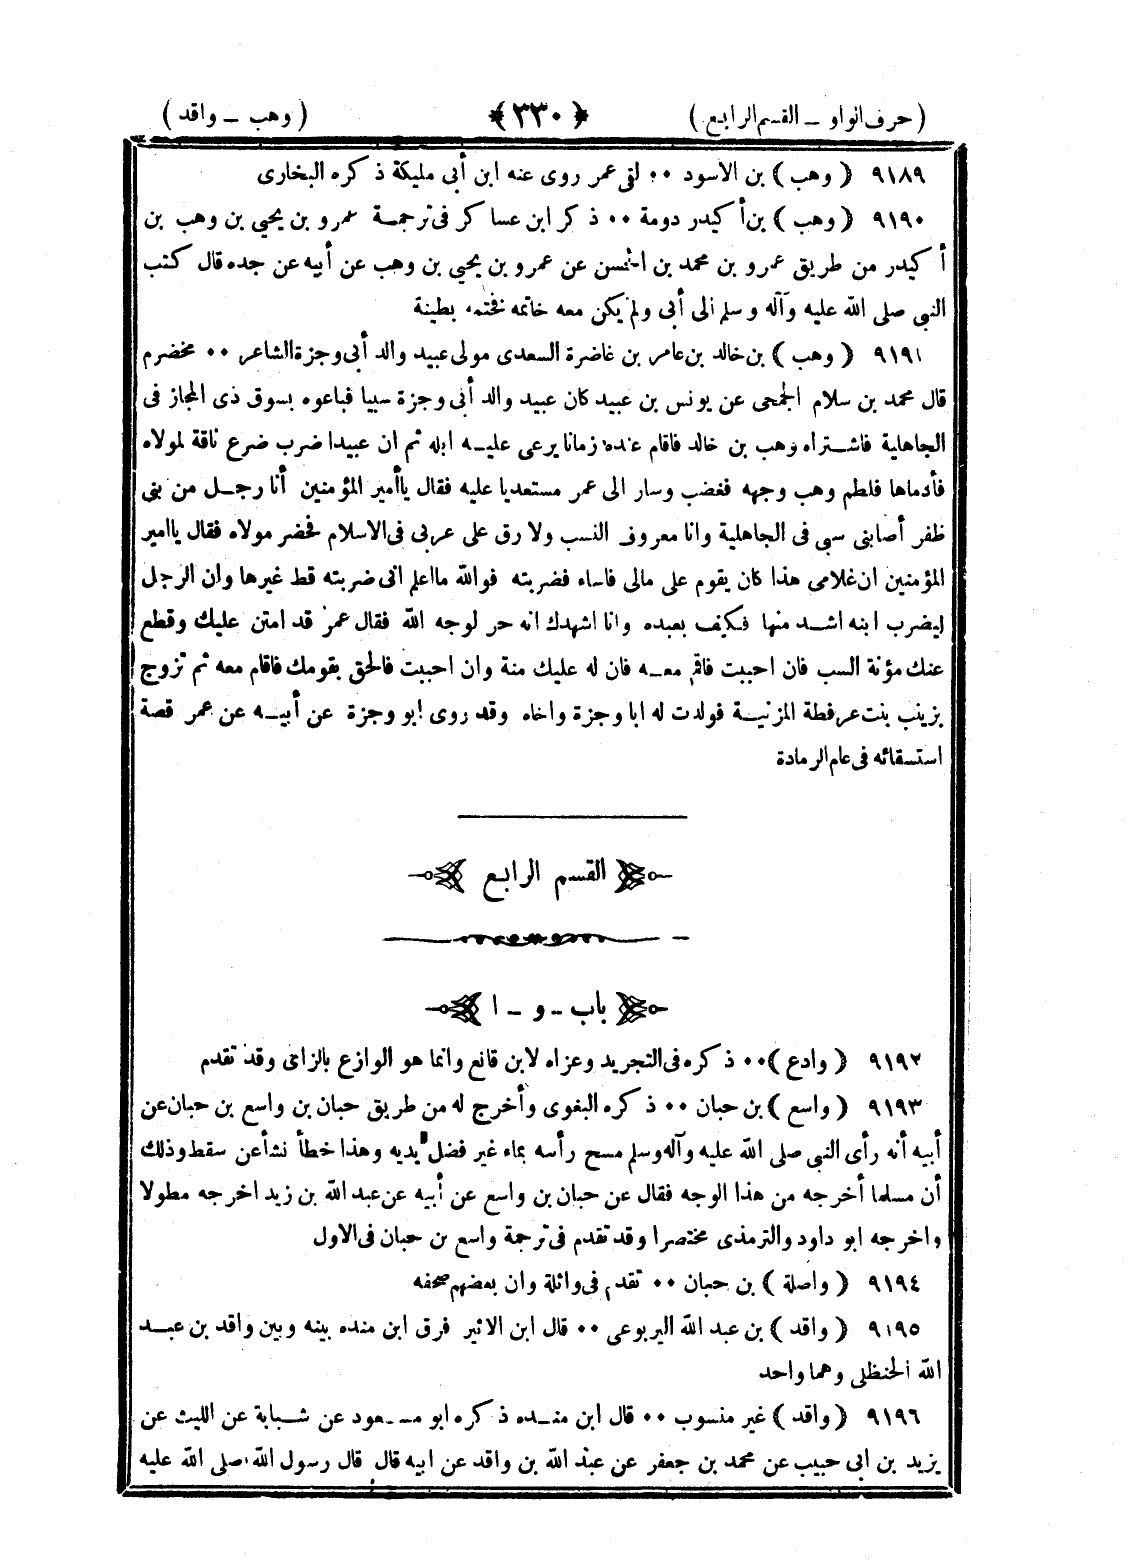 ( حرف الواو ــ القسم الرابع ) ﴿ ٣٣٠ ﴾ ( وهب ــ واقد )
٩١٨٩ ( وهب ) بن الاسود ٠٠ لقى عمر روى عنه ابن أبى مليكة ذكره البخارى
٩١٩٠ ( وهب ) بن أكيدر دومة ٠٠ ذكر ابن عساكر فى ترجمة عمرو بن يحيى بن وهب بن
أكيدر من طريق عمرو بن محمد بن الحسن عن عمرو بن يحيى بن وهب عن أبيه عن جده قال كتب
النبى صلى الله عليه وآله وسلم الى أبى ولم يكن معه خاتمه فختمه بطينة
٩١٩١ ( وهب ) بن خالد بن عامر بن غاضرة السعدى مولى عبيد والد أبى وجزة الشاعر ٠٠ مخضرم
قال محمد بن سلام الجمحى عن يونس بن عبيد كان عبيد والد أبى وجزة سبيا فباعوه بسوق ذى المجاز فى
الجاهلية فاشتراه وهب بن خالد فاقام عنده زمانا يرعى عليه ابله ثم ان عبيدا ضرب ضرع ناقة لمولاه
فأدماها فلطم وهب وجهه فغضب وسار الى عمر مستعديا عليه فقال يا أمير المؤمنين أنا رجل من بنى
ظفر أصابنى سبى فى الجاهلية وانا معروف النسب ولا رق على عربى فى الاسلام فحضر مولاه فقال يا امير
المؤمنين ان غلامى هذا كان يقوم على مالى فاساء فضربته فوالله ما اعلم انى ضربته قط غيرها وان الرجل
ليضرب ابنه اشد منها فكيف بعبده وانا اشهدك انه حر لوجه الله فقال عمر قد امتن عليك وقطع
عنك مؤنة السب فان احببت فاقم معه فان له عليك منة وان احببت فالحق بقومك فاقام معه ثم تزوج
بزينب بنت عرفطة المزنية فولدت له ابا وجزة واخاه وقد روى ابو وجزة عن أبيه عن عمر قصة
استسقائه فى عام الرمادة
القسم الرابع
باب ــ و ــ ا
٩١٩٢ ( وادع ) ٠٠ ذكره فى التجريد وعزاه لابن قانع وانما هو الوازع بالزاى وقد تقدم
٩١٩٣ ( واسع ) بن حبان ٠٠ ذكره البغوى وأخرج له من طريق حبان بن واسع بن حبان عن
أبيه أنه رأى النبى صلى الله عليه وآله وسلم مسح رأسه بماء غير فضل يديه وهذا خطأ نشأ عن سقط وذلك
أن مسلما أخرجه من هذا الوجه فقال عن حبان بن واسع عن أبيه عن عبد الله بن زيد اخرجه مطولا
واخرجه ابو داود والترمذى مختصرا وقد تقدم فى ترجمة واسع بن حبان فى الاول
٩١٩٤ ( واصلة ) بن حبان ٠٠ تقدم فى واثلة وان بعضهم صحفه
٩١٩٥ ( واقد ) بن عبد الله اليربوعى ٠٠ قال ابن الاثير فرق ابن منده بينه وبين واقد بن عبد
الله الحنظلى وهما واحد
٩١٩٦ ( واقد ) غير منسوب ٠٠ قال ابن منده ذكره ابو مسعود عن شبابة عن الليث عن
يزيد بن ابى حبيب عن محمد بن جعفر عن عبد الله بن واقد عن ابيه قال قال رسول الله صلى الله عليه